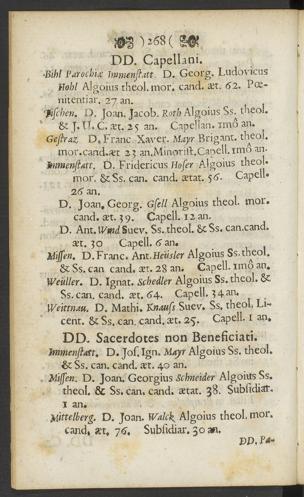 )268(
DD. Capellani.
Bihl Parochiæ Immenstatt D. Georg. Ludovicus
Hobl Algoius theol. mor. cand. æt. 62. Pœ-
nitentiar. 27 an.
Fischen. D. Joan. Jacob. Roth Algoius Ss. theol.
& J. U. C. æt. 25 an. Capellan. 1mô an.
Gestraz D. Franc. Xaver. Mayr Brigant. theol.
mor. cand. æt 23 an. Minorist. Capell. 1mô an.
Immenstatt. D. Fridericus Hoser Algoius theol.
mor. & Ss. can. cand. ætat. 56. Capell.
26 an.
D. Joan. Georg. Gsell Algoius theol. mor.
cand. æt. 39. Capell. 12 an.
D. Ant. Wind Suev. Ss. theol. & Ss. can. cand.
æt. 30 Capell. 6 an.
Missen. D. Franc. Ant. Heüsler Algoius Ss. theol.
& Ss. can cand. æt. 28 an. Capell. 1mô an.
Weüller. D. Ignat. Schedler Algoius Ss. theol. &
Ss. can. cand. æt. 64. Capell. 34 an.
Weittnau. D. Mathi. Knauss Suev. Ss. theol. Li-
cent. & Ss. can. cand. æt. 25. Capell. 1 an.
DD. Sacerdotes non Beneficiati.
Immenstatt. D. Jos. Ign. Mayr Algoius Ss. theol.
& Ss. can. cand. æt. 40 an.
Missen. D. Joan. Georgius Schneider Algoius Ss.
theol. & Ss. can. cand. ætat. 38. Subsidiar.
1 an.
Mittelberg. D. Joan. Walck Algoius theol. mor.
cand. æt. 76. Subsidiar. 30 an.
DD. Pa-